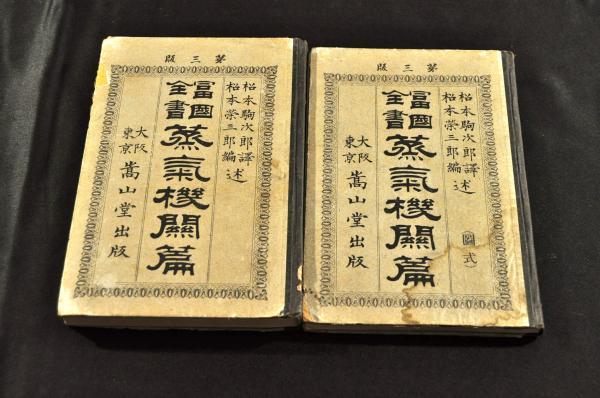 第三版
松本駒次郎譯
松本榮三郎編述
富國全書蒸氣機關篇
大阪
東京 嵩山堂出版
第三版
松本駒次郎譯
松本榮三郎編述
(圖式)
富國全書蒸氣機關篇
大阪
東京 嵩山堂出版